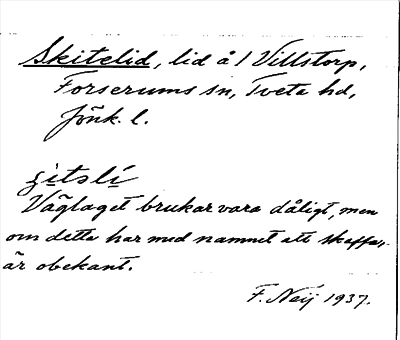 Skitelid, lid å 1 Villstorp,
Forserums sn, Tveta hd,
Jönk. l.
Väglaget brukar vara dåligt, men
om detta har med namnet att skaffa,
är obekant.
F. Neij 1937.